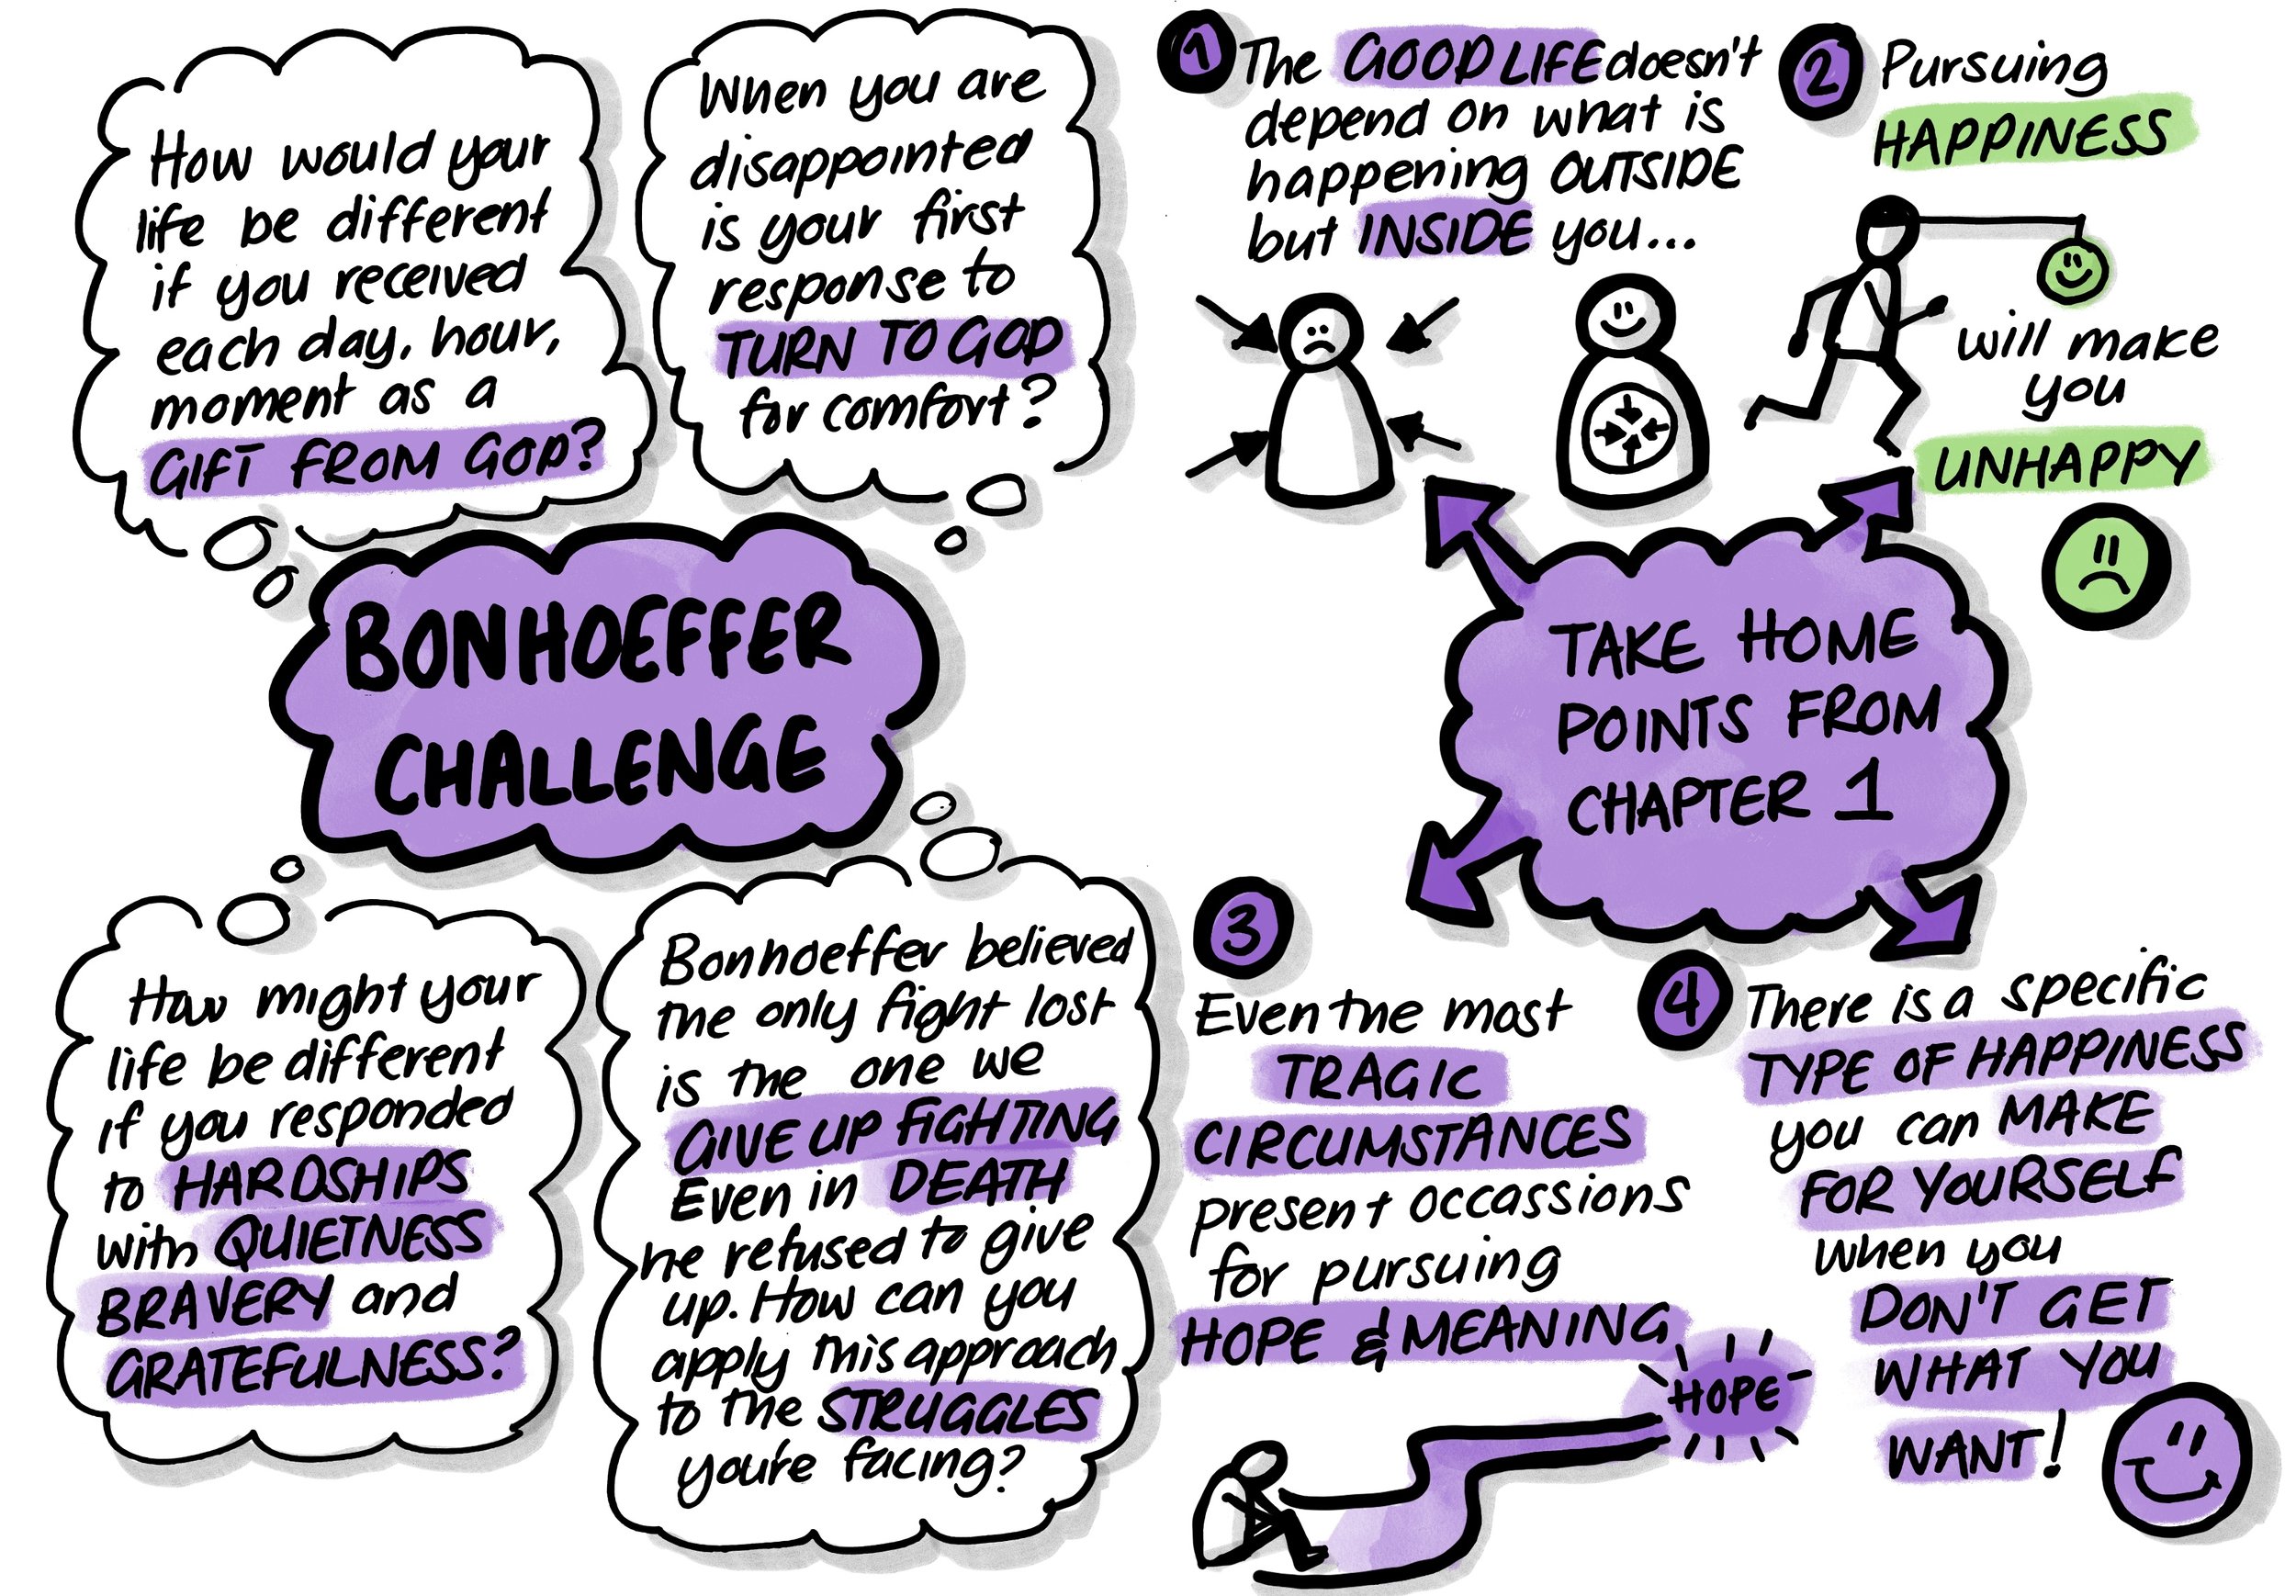 How would your
life be different
if you received
each day, hour,
moment as a
GIFT FROM GOD?
When you are
disappointed
is your first
response to
TURN TO GOD
for comfort?
BONHOEFFER
CHALLENGE
How might your
life be different
if you responded
to HARDSHIPS
with QUIETNESS
BRAVERY and
GRATEFULNESS?
Bonhoeffer believed
the only fight lost
is the one we
GIVE UP FIGHTING
Even in DEATH
he refused to give
up. How can you
apply this approach
to the STRUGGLES
you're facing?
1 The GOOD LIFE doesn't
depend on what is
happening OUTSIDE
but INSIDE you...
2 Pursuing
HAPPINESS
will make
you
UNHAPPY
TAKE HOME
POINTS FROM
CHAPTER 1
3
Even the most
TRAGIC
CIRCUMSTANCES
present occassions
for pursuing
HOPE & MEANING
HOPE
4 There is a specific
TYPE OF HAPPINESS
you can MAKE
FOR YOURSELF
when you
DON'T GET
WHAT YOU
WANT!